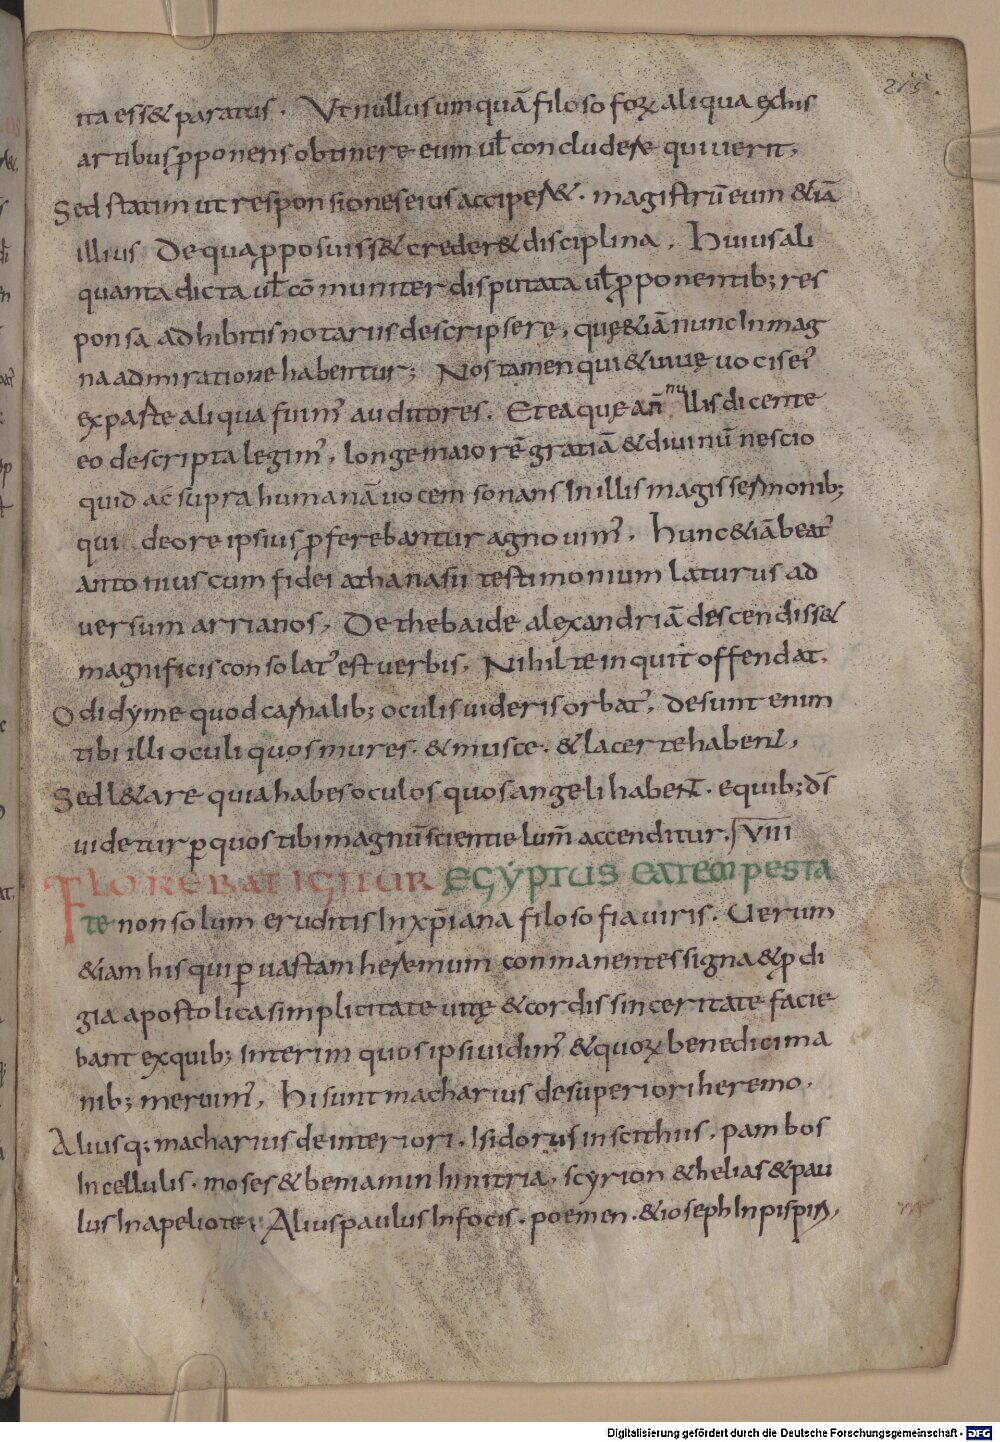 215.
ita ess& paratus. Vt nullus umquā filosofoꝝ aliqua exhis
artibus ꝓponens obtinere eum ul̄ concludere quiuerit,
Sed statim ut responsiones eius acciper&. magistrū eum &iā
illius De qua ꝓposuiss& creder& disciplina, Huius ali
quanta dicta ul̄ cōmuniter disputata ul̄ ꝓponentib; res
ponsa adhibitis notariis descripsere, quę &iā nunc In mag
na admiratione habentur; Nos tamen qui & uiuę uocis ei᾽
ex parte aliqua fuim᾽ auditores. Et ea quę a nōnullis dicente
eo descripta legim᾽, longe maiorē gratiā & diuinū nescio
quid ac supra humanā uocem sonans In illis magis sermonib;
qui deore ipsius ꝓferebantur agnouim᾽. Hunc &iā beat᾽
antonius cum fidei athanasii testimonium laturus ad
uersum arrianos, De thebaide alexandriā descendiss&
magnificis consolat᾽ est uerbis, Nihil te inquit offendat,
O didyme quod carnalib; oculis uideris orbat᾽, desunt enim
tibi illi oculi quos mures. & musce. & lacerte habent,
Sed l&are quia habes oculos quos angeli habent. e quib; d̄s
uidetur ꝑ quos tibi magnū scientie lum̄ accenditur. VIII
FLOREBAT IGITUR EGYPTUS EA TEMPESTA
te non solum eruditis In xp̄iana filosofia uiris. Uerum
&iam his qui ꝑ uastam heremum conmanentes signa & ꝓdi
gia apostolica simplicitate uitę & cordis sinceritate facie
bant ex quib; interim quos ipsi uidim᾽ & quoꝝ benedici ma
nib; meruim᾽, Hi sunt macharius desuperiori heremo,
Alius q; macharius de interiori. Isidorus in scithiis. pambos
In cellulis. moses & beniamin In nitria, scyrion & helias & pau
lus In apeliote; Alius paulus In focis. poemen. & ioseph In pispiri,
Digitalisierung gefördert durch die Deutsche Forschungsgemeinschaft - DFG